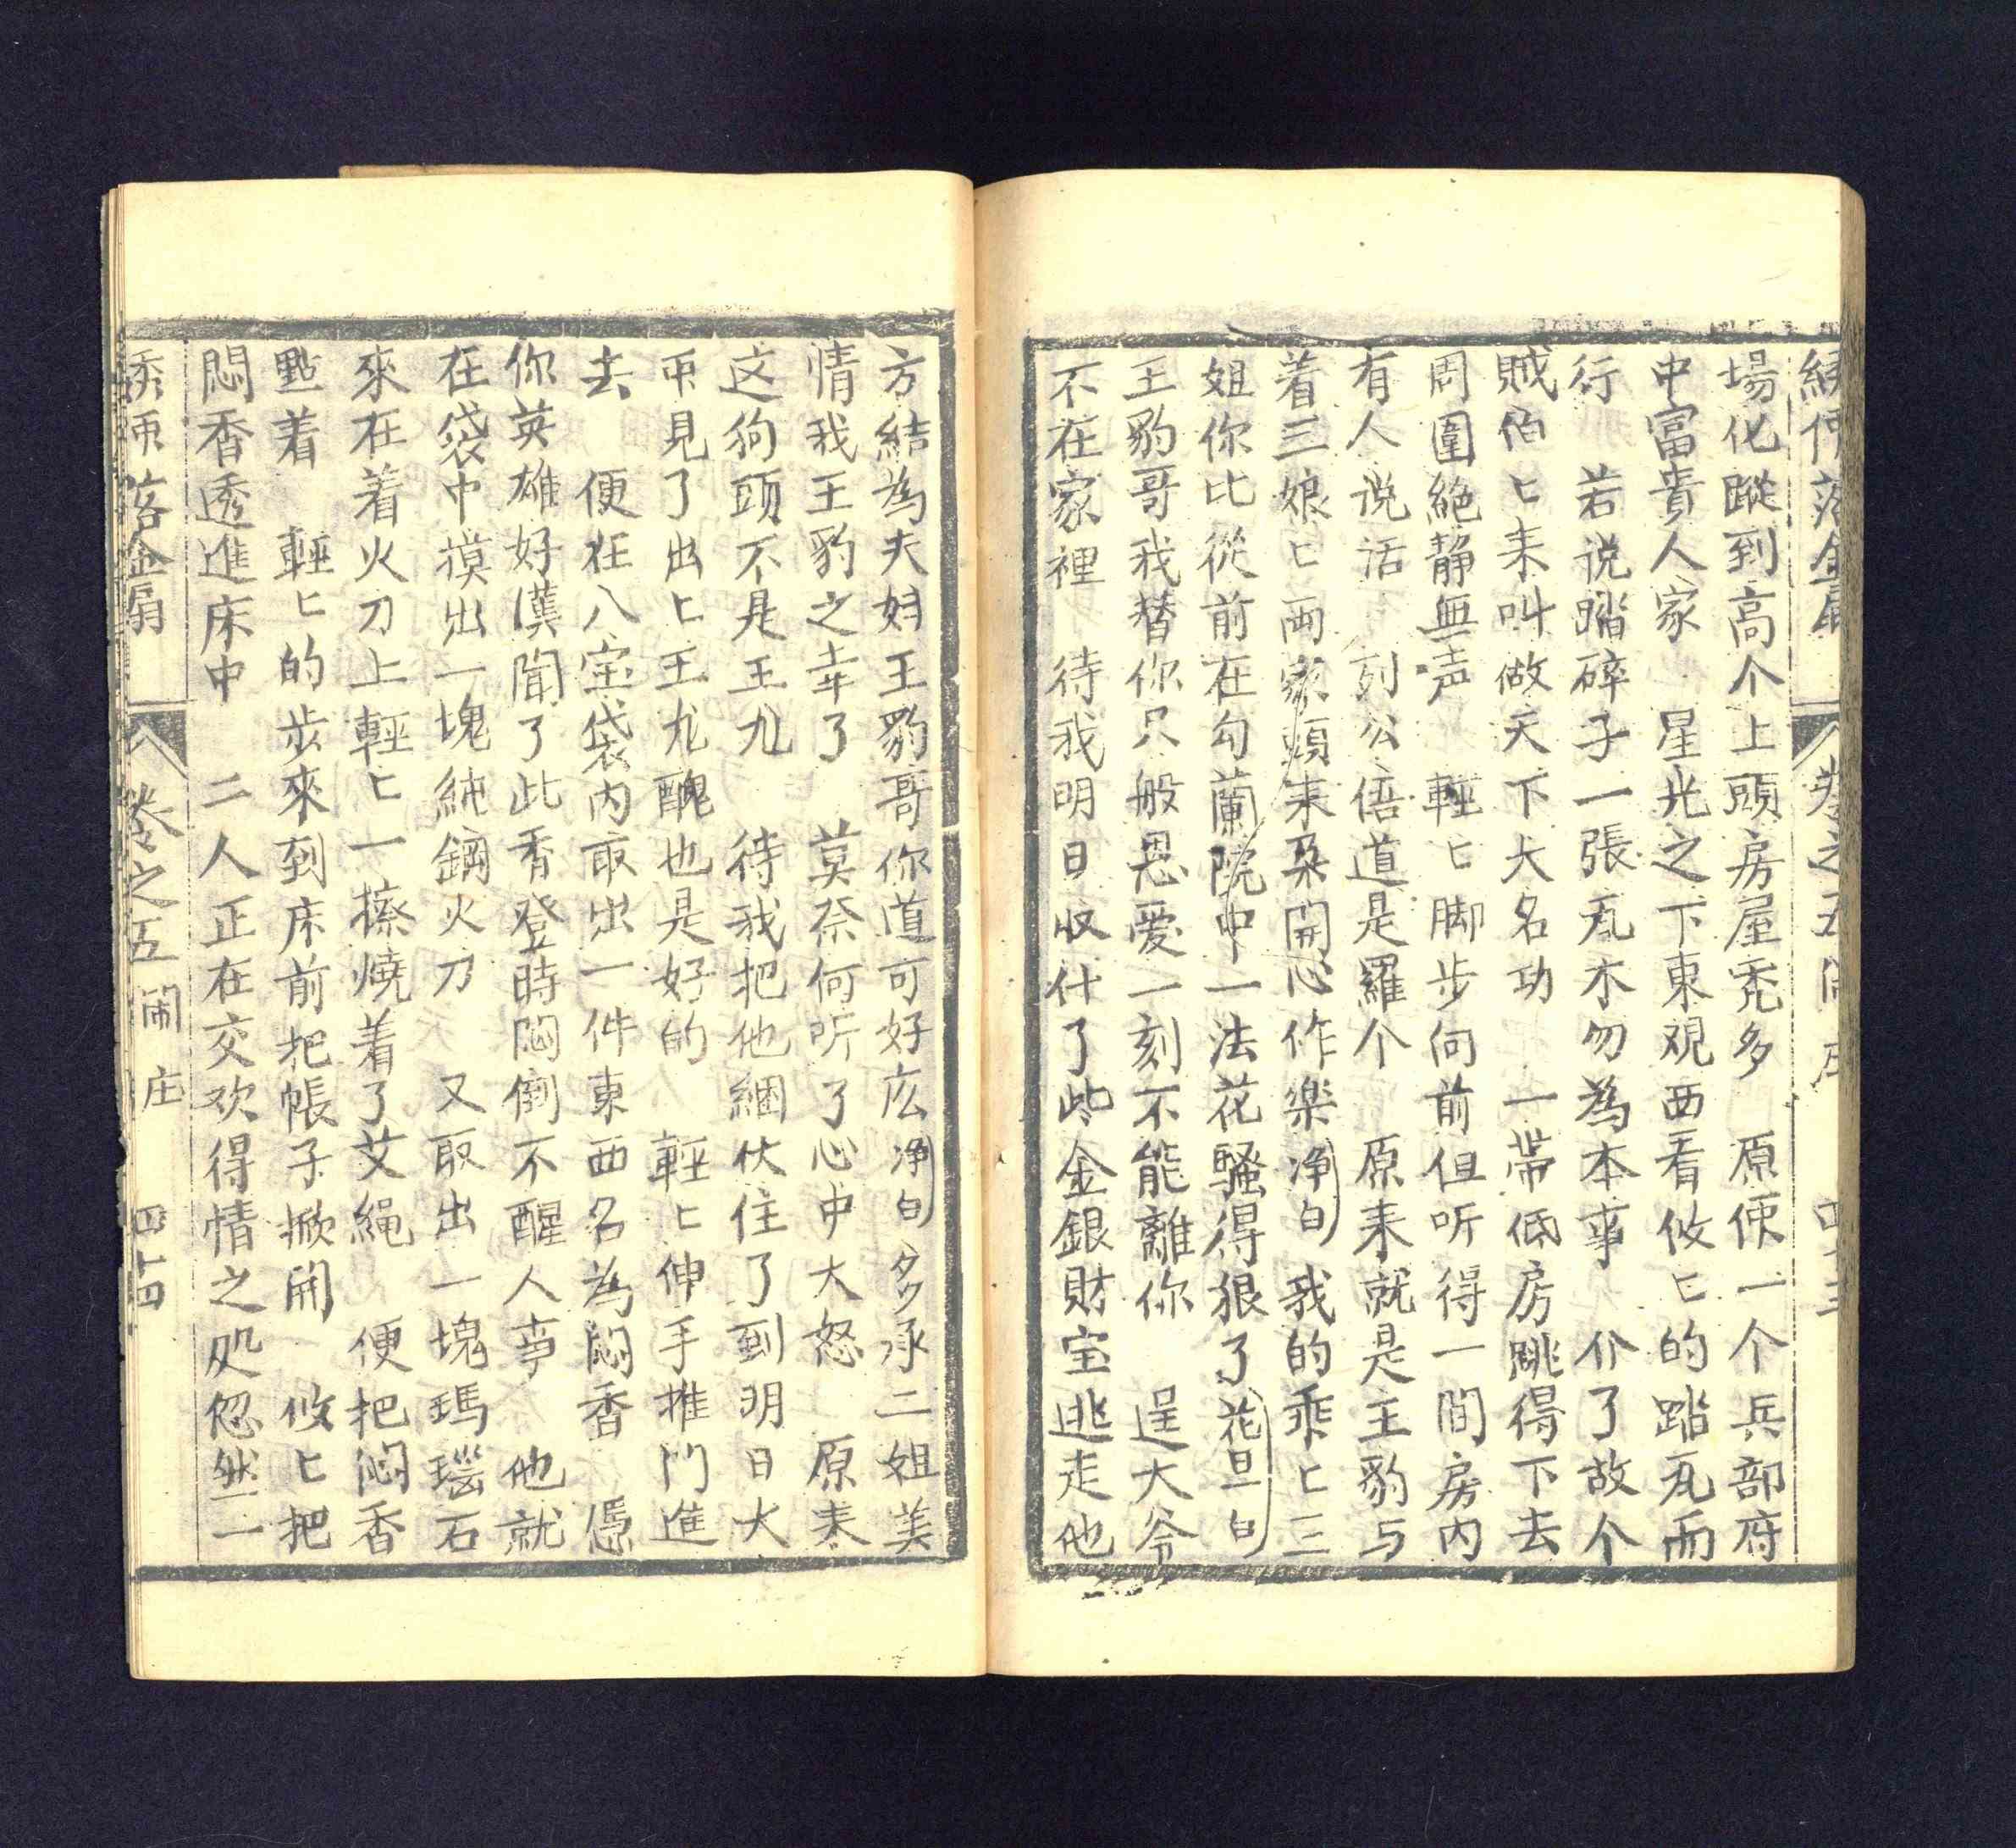 場化蹤到高个上頭房屋秃多　原使一个兵部府
中富貴人家　星光之下東观西看攸匕的踏瓦而
行　若说踏碎子一張瓦木勿為本事　介了故个
賊伯匕耒叫做天下大名功　一帶低房跳得下去
周圍絶静無声　輕匕脚步向前但听得一間房内
有人说话　列公倍道是羅个　原耒就是王豹与
着三娘匕両家頭耒朶開心作楽净白我的乖匕三
姐你比從前在勾蘭院中一法花騷得狠了花旦白
王豹哥我替你只般恩愛一刻不能離你　逞大爷
不在家裡　待我明日收什了些金銀財宝逃走他
方結為夫婦王豹哥你道可好庅净白多承二姐美
情我王豹之幸了　莫奈何听了心中大怒　原耒
这狗頭不是王九　待我把他綑伏住了到明日大
帀見了出匕王九醜也是好的　輕匕伸手推门進
去　便在八宝袋内取出一件東西名為闷香　憑
你英雄好漢聞了此香登時悶倒不醒人事　他就
在袋中摸出一塊純鋼火刀　又取出一塊瑪瑙石
來在着火刀上輕匕一擦燒着了艾絕　便把闷香
點着　輕匕的步來到床前把帳子掀開　攸匕把
悶香透進床中　二人正在交欢得情之处忽然一
落金扇　卷之五　闹庄　四十四